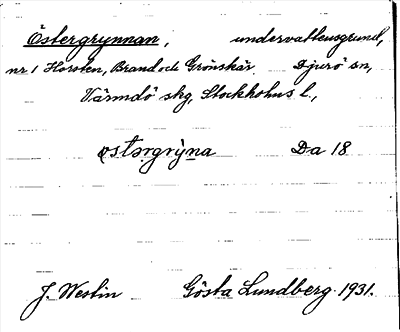 Östergrynnan, undervattensgrund,
nr 1 Horsten, Brand och Grönskär. Djurö sn,
Värmdö skg, Stockholms l.,
östərgrỳna Da 18
J. Westin Gösta Lundberg 1931.